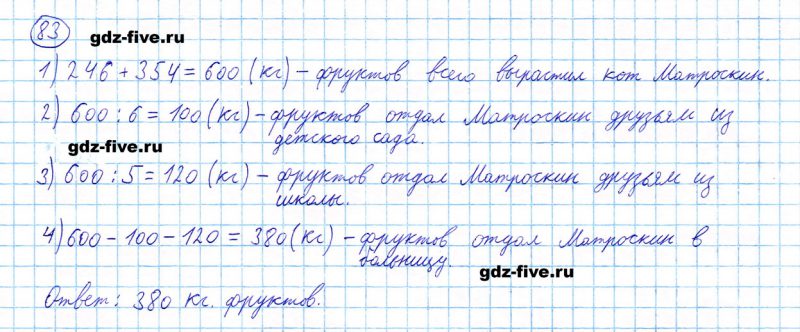 83
gdz-five.ru
1) 246 + 354 = 600 (кг) – фруктов всего вырастил кот Матроскин.
2) 600 : 6 = 100 (кг) – фруктов отдал Матроскин друзьям из
детского сада.
gdz-five.ru
3) 600 : 5 = 120 (кг) – фруктов отдал Матроскин друзьям из
школы.
4) 600 – 100 – 120 = 380 (кг) – фруктов отдал Матроскин в
больницу.
gdz-five.ru
Ответ: 380 кг. фруктов.